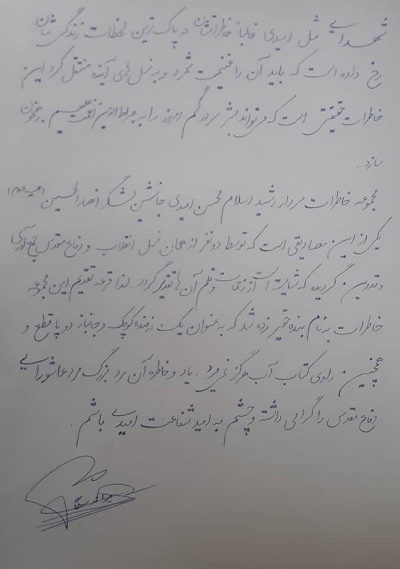 شهدایی مثل امیدی غالباً خاطراتشان در پاک‌ترین لحظات زندگی‌شان
رخ داده است که باید آن را غنیمت شمرد و به نسل‌های آینده منتقل کرد این
خاطرات حقیقتی است که می‌تواند بشر سردرگم امروز را به صراط الذین انعمت علیهم رهنمون
سازد.
مجموعه خاطرات سردار رشید اسلام محسن امیدی جانشین لشگر انصارالحسین (علیه‌السلام)
یکی از این مصادیقی است که توسط دو نفر از همان نسل انقلاب و دفاع مقدس جمع‌آوری
و تدوین گردیده که شایسته است از زحمات و قلم آن‌ها تقدیر گردد. لذا قرعه تقدیم این مجموعه
خاطرات به نام بنده حقیر زده شد که به عنوان یک رزمنده کوچک و جانباز دو پا قطع و
همچنین راوی کتاب آب هرگز نمی‌میرد، یاد و خاطره آن مرد بزرگ مرد عاشورایی
دفاع مقدس را گرامی داشته و چشم به امید شفاعت امیدی باشم.